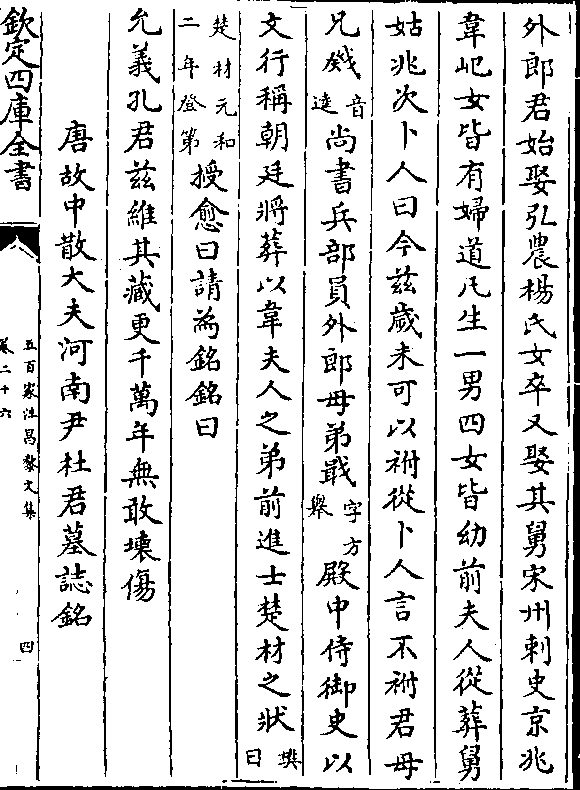 外郎君始娶弘農楊氏女卒又娶其舅宋州刺史京兆
韋屺女皆有婦道凡生一男四女皆幼前夫人從葬舅
姑兆次卜人曰今茲歲未可以祔從卜人言不祔君母
兄戣音逵尚書兵部員外郎母弟戢字方舉殿中侍御史以
文行稱朝廷將葬以韋夫人之弟前進士楚材之狀樊曰
楚材元和二年登第授愈曰請為銘銘曰
允義孔君茲維其藏更千萬年無敢壞傷
唐故中散大夫河南尹杜君墓誌銘
欽定四庫全書
五百家注昌黎文集
卷二十六
四